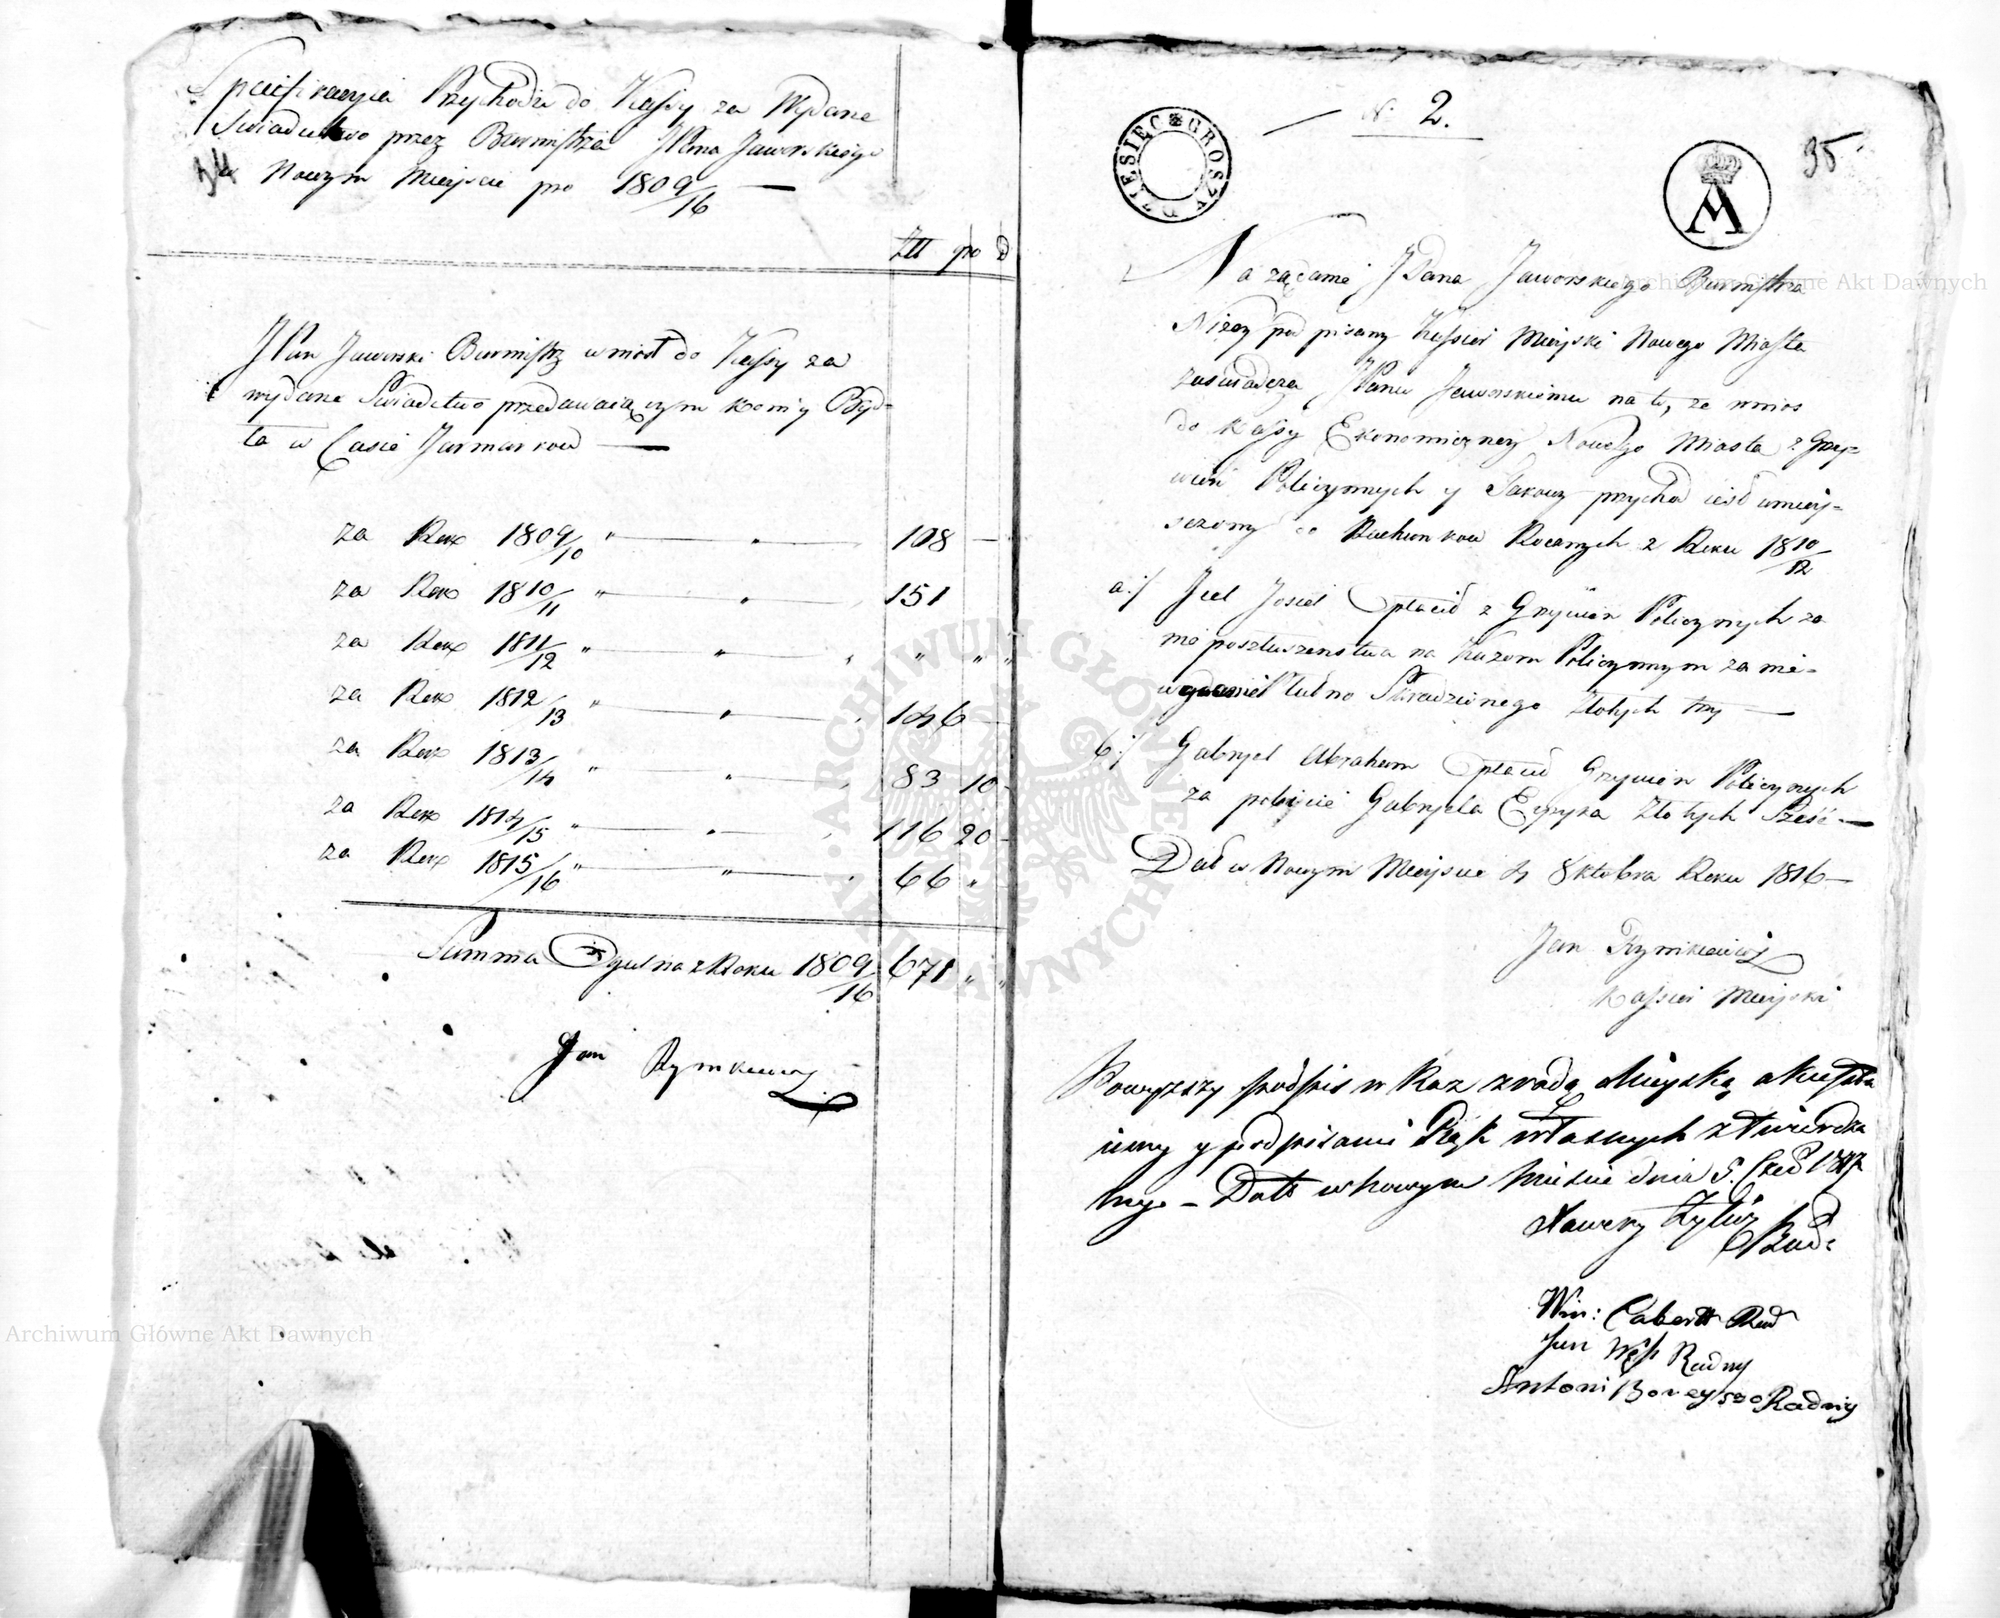 Specifikacyia Przychodu do Kassy za Wydane
Swiadectwo przez Burmistrza JPana Jaworskiego
w Nowym Mieyscie pro 1809/16
Złł gro d
JPan Jaworski Burmistrz wniosł do Kassy za
wydane Swiadectwo przedawaiączym Konie y Byd-
ła w Czasie Jarmarkow
za Rok 1809/10 " " 108 —
za Rok 1810/11 " " 151
za Rok 1811/12 " " " " "
za Rok 1812/13 " " 146 —
za Rok 1813/14 " " 83 10 -
za Rok 1814/15 " " 116 20 -
za Rok 1815/16 " " 66 "
Summa Ogulna z Roku 1809/16 671 " "
Jan Rymkiewicz
N. 2.
95
DZIESIĘC GROSZY
Na ządanie JPana Jaworskiego Burmistrza
Nizey podpisany Kassier Mieyski Nowego Miasta
zaswiadcza JPanu Jaworskiemu na to, ze wnios
do Kassy Ekonomiczney Nowego Miasta z Grzy-
wien Policyinych y Takowy przychod iest umiey-
sczony do Rachunkow Rocznych z Roku 1810/12
a:/ Jcel Josiel Opłacił z Grzywien Policyinych za
nieposzłuszenstwa na Kazom Policyinym za nie-
Skradzionego Złotych try
b:/ Gabryel Abraham Opłacił Grzywien Policyinych
za pobycie Gabryela Złotych Sześć
Dał w Nowym Mieyscie d 8 Oktobra Roku 1816
Jan Rymkiewicz
Kassier Mieyski
Powyszszy podpis w Raz z radą Mieyską
iemy y podpisami Rąk własnych ztwierdza
my. Datt w Nowym Miescie dnia 5. Czer 1817
Xawery Rad:
Win: Rad
Jan Radny
Antoni Radny
Archiwum Główne Akt Dawnych
Archiwum Główne Akt Dawnych
ARCHIWUM GŁÓWNE AKT DAWNYCH